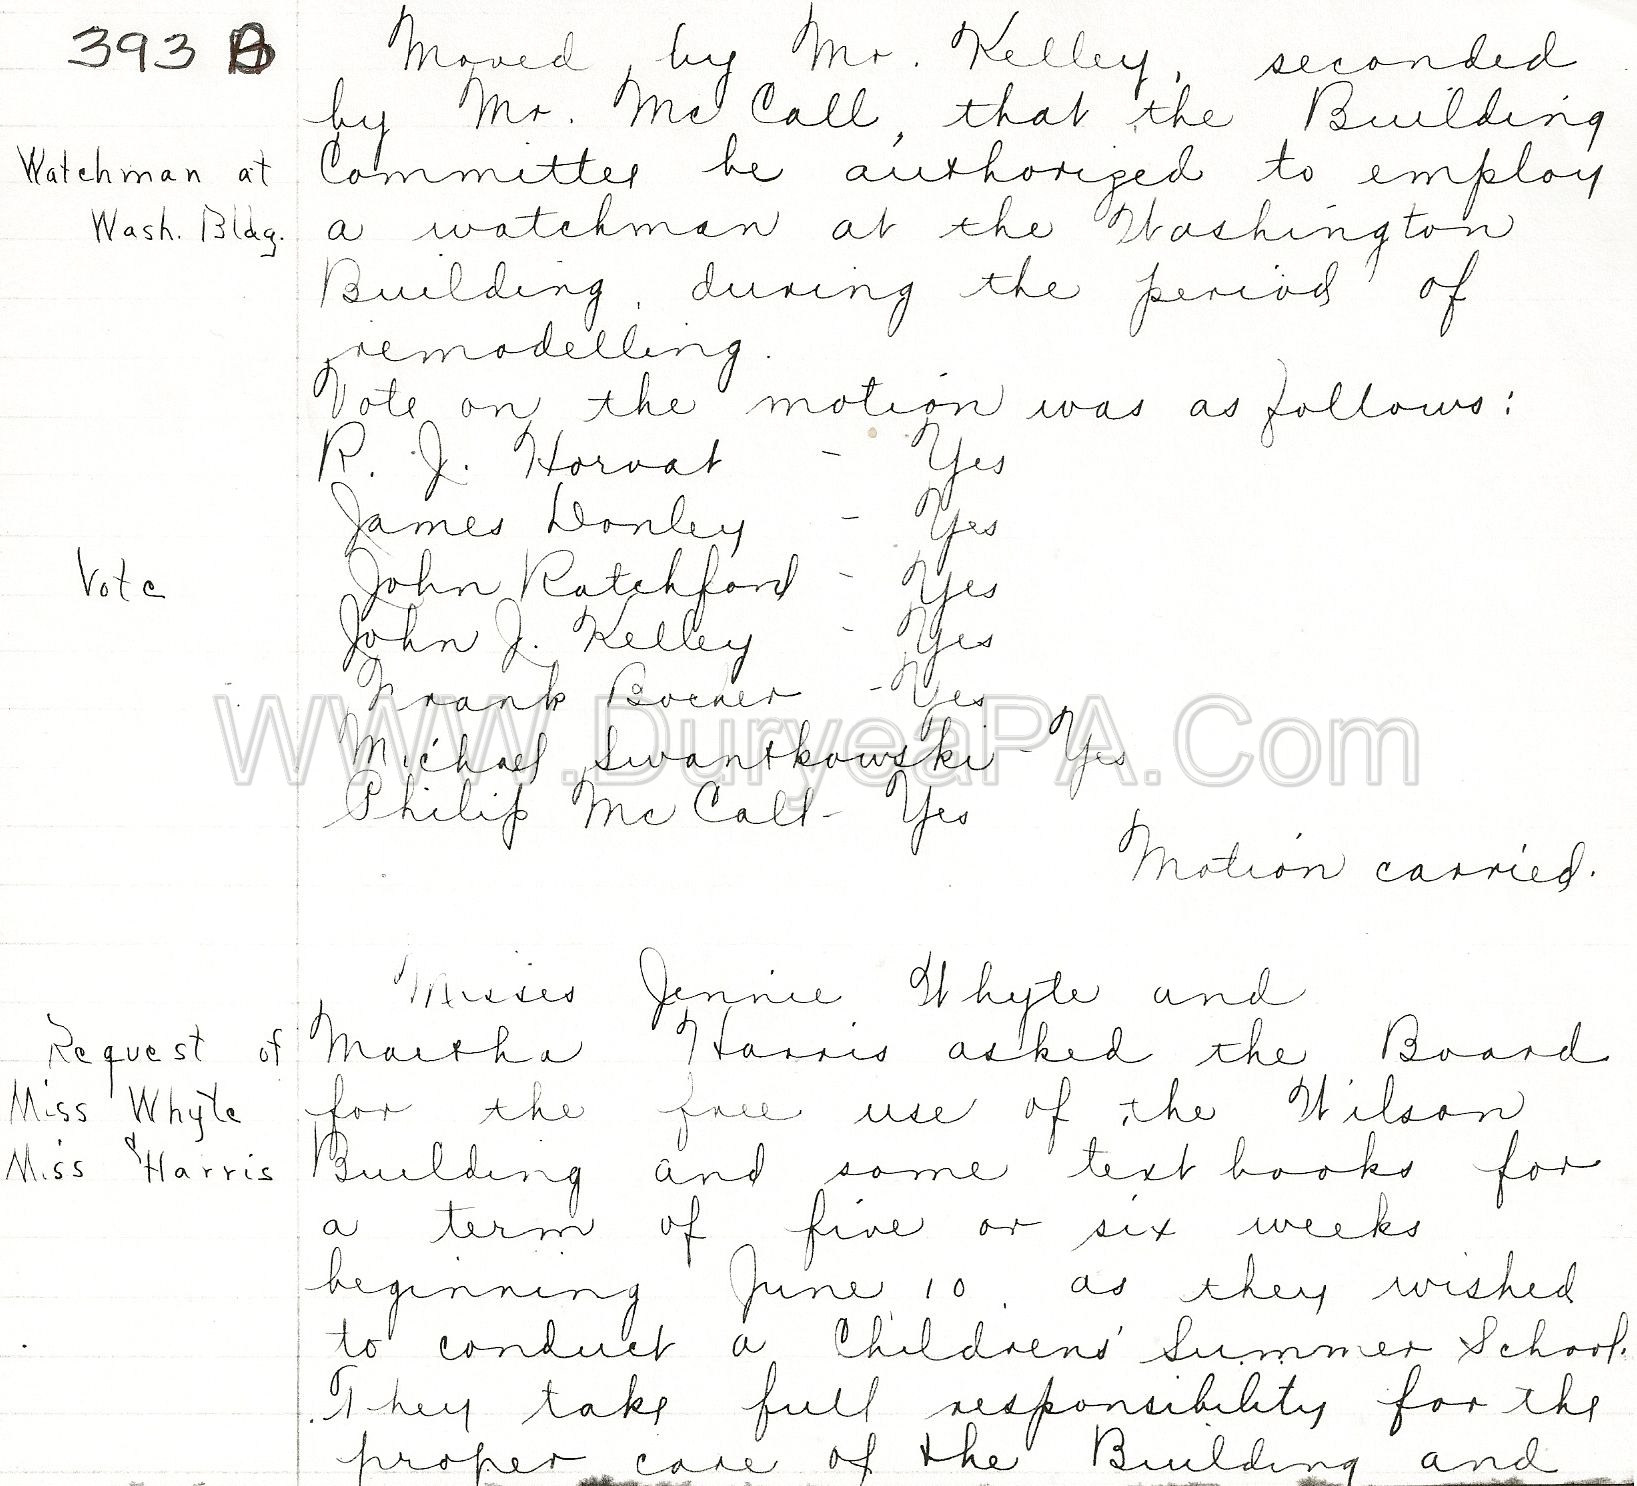 393 B
Moved by Mr. Kelley, seconded
by Mr. McCall, that the Building
Watchman at
Committee be authorized to employ
Wash. Bldg.
a watchman at the Washington
Building, during the period of
remodelling.
Vote on the motion was as follows:
R. J. Horvat - Yes
James Donley - Yes
Vote
John Ratchford - Yes
John J. Kelley - Yes
Frank - Yes
WWW.DuryeaPA.Com
Michael Swantkowski - Yes
Philip McCall - Yes
Motion carried.
Misses Jennie Whyte and
Request of
Martha Harris asked the Board
Miss Whyte
for the free use of the Wilson
& Miss Harris
Building and some text books for
a term of five or six weeks
beginning June 10, as they wished
to conduct a Childrens' Summer School.
They take full responsibility for the
proper care of the Building and